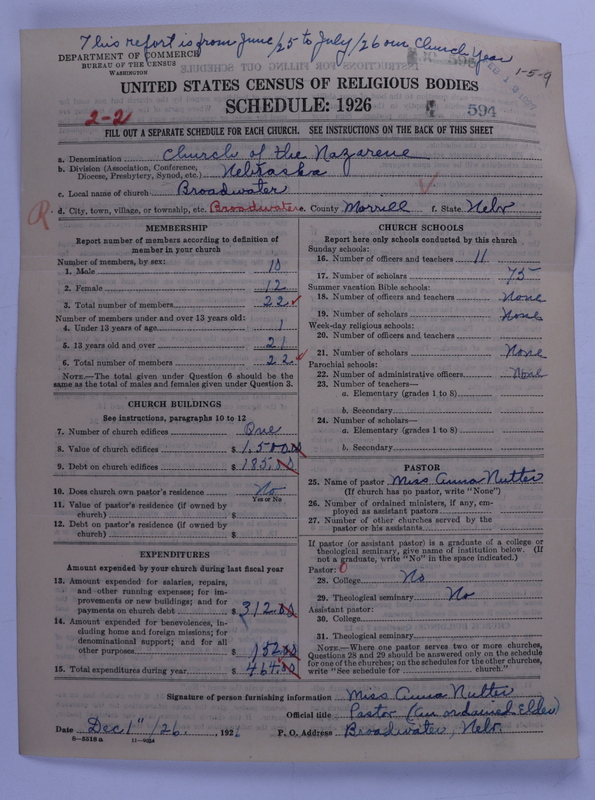 This report is from June/25 to July/26 our Church Year
DEPARTMENT OF COMMERCE
BUREAU OF THE CENSUS
WASHINGTON
1-5-9
UNITED STATES CENSUS OF RELIGIOUS BODIES
SCHEDULE: 1926
2-2
594
FILL OUT A SEPARATE SCHEDULE FOR EACH CHURCH. SEE INSTRUCTIONS ON THE BACK OF THIS SHEET
a. Denomination Church of the Nazarene
b. Division (Association, Conference, Diocese, Presbytery, Synod, etc.) Nebraska
c. Local name of church Broadwater
R d. City, town, village, or township, etc. Broadwater e. County Morrill f. State Nebr
MEMBERSHIP
Report number of members according to definition of
member in your church
Number of members, by sex:
1. Male 10
2. Female 12
3. Total number of members 22
Number of members under and over 13 years old:
4. Under 13 years of age 1
5. 13 years old and over 21
6. Total number of members 22
NOTE.—The total given under Question 6 should be the
same as the total of males and females given under Question 3.
CHURCH BUILDINGS
See instructions, paragraphs 10 to 12
7. Number of church edifices One
8. Value of church edifices $ 1,500.00
9. Debt on church edifices $ 185.00
10. Does church own pastor's residence No
Yes or No
11. Value of pastor's residence (if owned by
church) $
12. Debt on pastor's residence (if owned by
church) $
EXPENDITURES
Amount expended by your church during last fiscal year
13. Amount expended for salaries, repairs,
and other running expenses; for im-
provements or new buildings; and for
payments on church debt $ 312.00
14. Amount expended for benevolences, in-
cluding home and foreign missions; for
denominational support; and for all
other purposes $ 152.00
15. Total expenditures during year $ 464.00
CHURCH SCHOOLS
Report here only schools conducted by this church
Sunday schools:
16. Number of officers and teachers 11
17. Number of scholars 75
Summer vacation Bible schools:
18. Number of officers and teachers None
19. Number of scholars None
Week-day religious schools:
20. Number of officers and teachers
21. Number of scholars None
Parochial schools:
22. Number of administrative officers None
23. Number of teachers—
a. Elementary (grades 1 to 8)
b. Secondary
24. Number of scholars—
a. Elementary (grades 1 to 8)
b. Secondary
PASTOR
25. Name of pastor Miss Anna Nutter
(If church has no pastor, write "None")
26. Number of ordained ministers, if any, em-
ployed as assistant pastors
27. Number of other churches served by the
pastor or his assistants
If pastor (or assistant pastor) is a graduate of a college or
theological seminary, give name of institution below. (If
not a graduate, write "No" in the space indicated.)
Pastor: 0
28. College No
29. Theological seminary No
Assistant pastor:
30. College
31. Theological seminary
NOTE.—Where one pastor serves two or more churches,
Questions 28 and 29 should be answered only on the schedule
for one of the churches; on the schedules for the other churches,
write "See schedule for church."
Signature of person furnishing information Miss Anna Nutter
Official title Pastor (an ordained Elder)
Date Dec 1" /26. , 1926 P. O. Address Broadwater, Nebr.
8—5518 a 11—9034